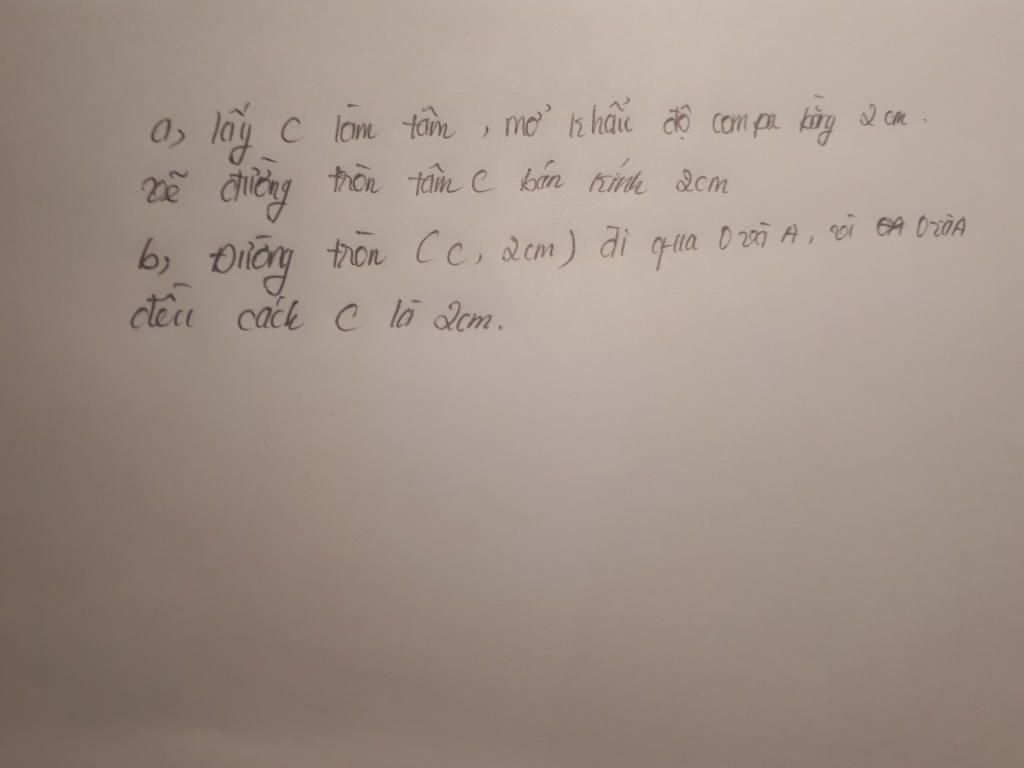 a, lấy C làm tâm, mở khẩu độ compa bằng 2cm.
vẽ đường tròn tâm C bán kính 2cm
b, Đường tròn (C, 2cm) đi qua O và A, vì O và A
đều cách C là 2cm.